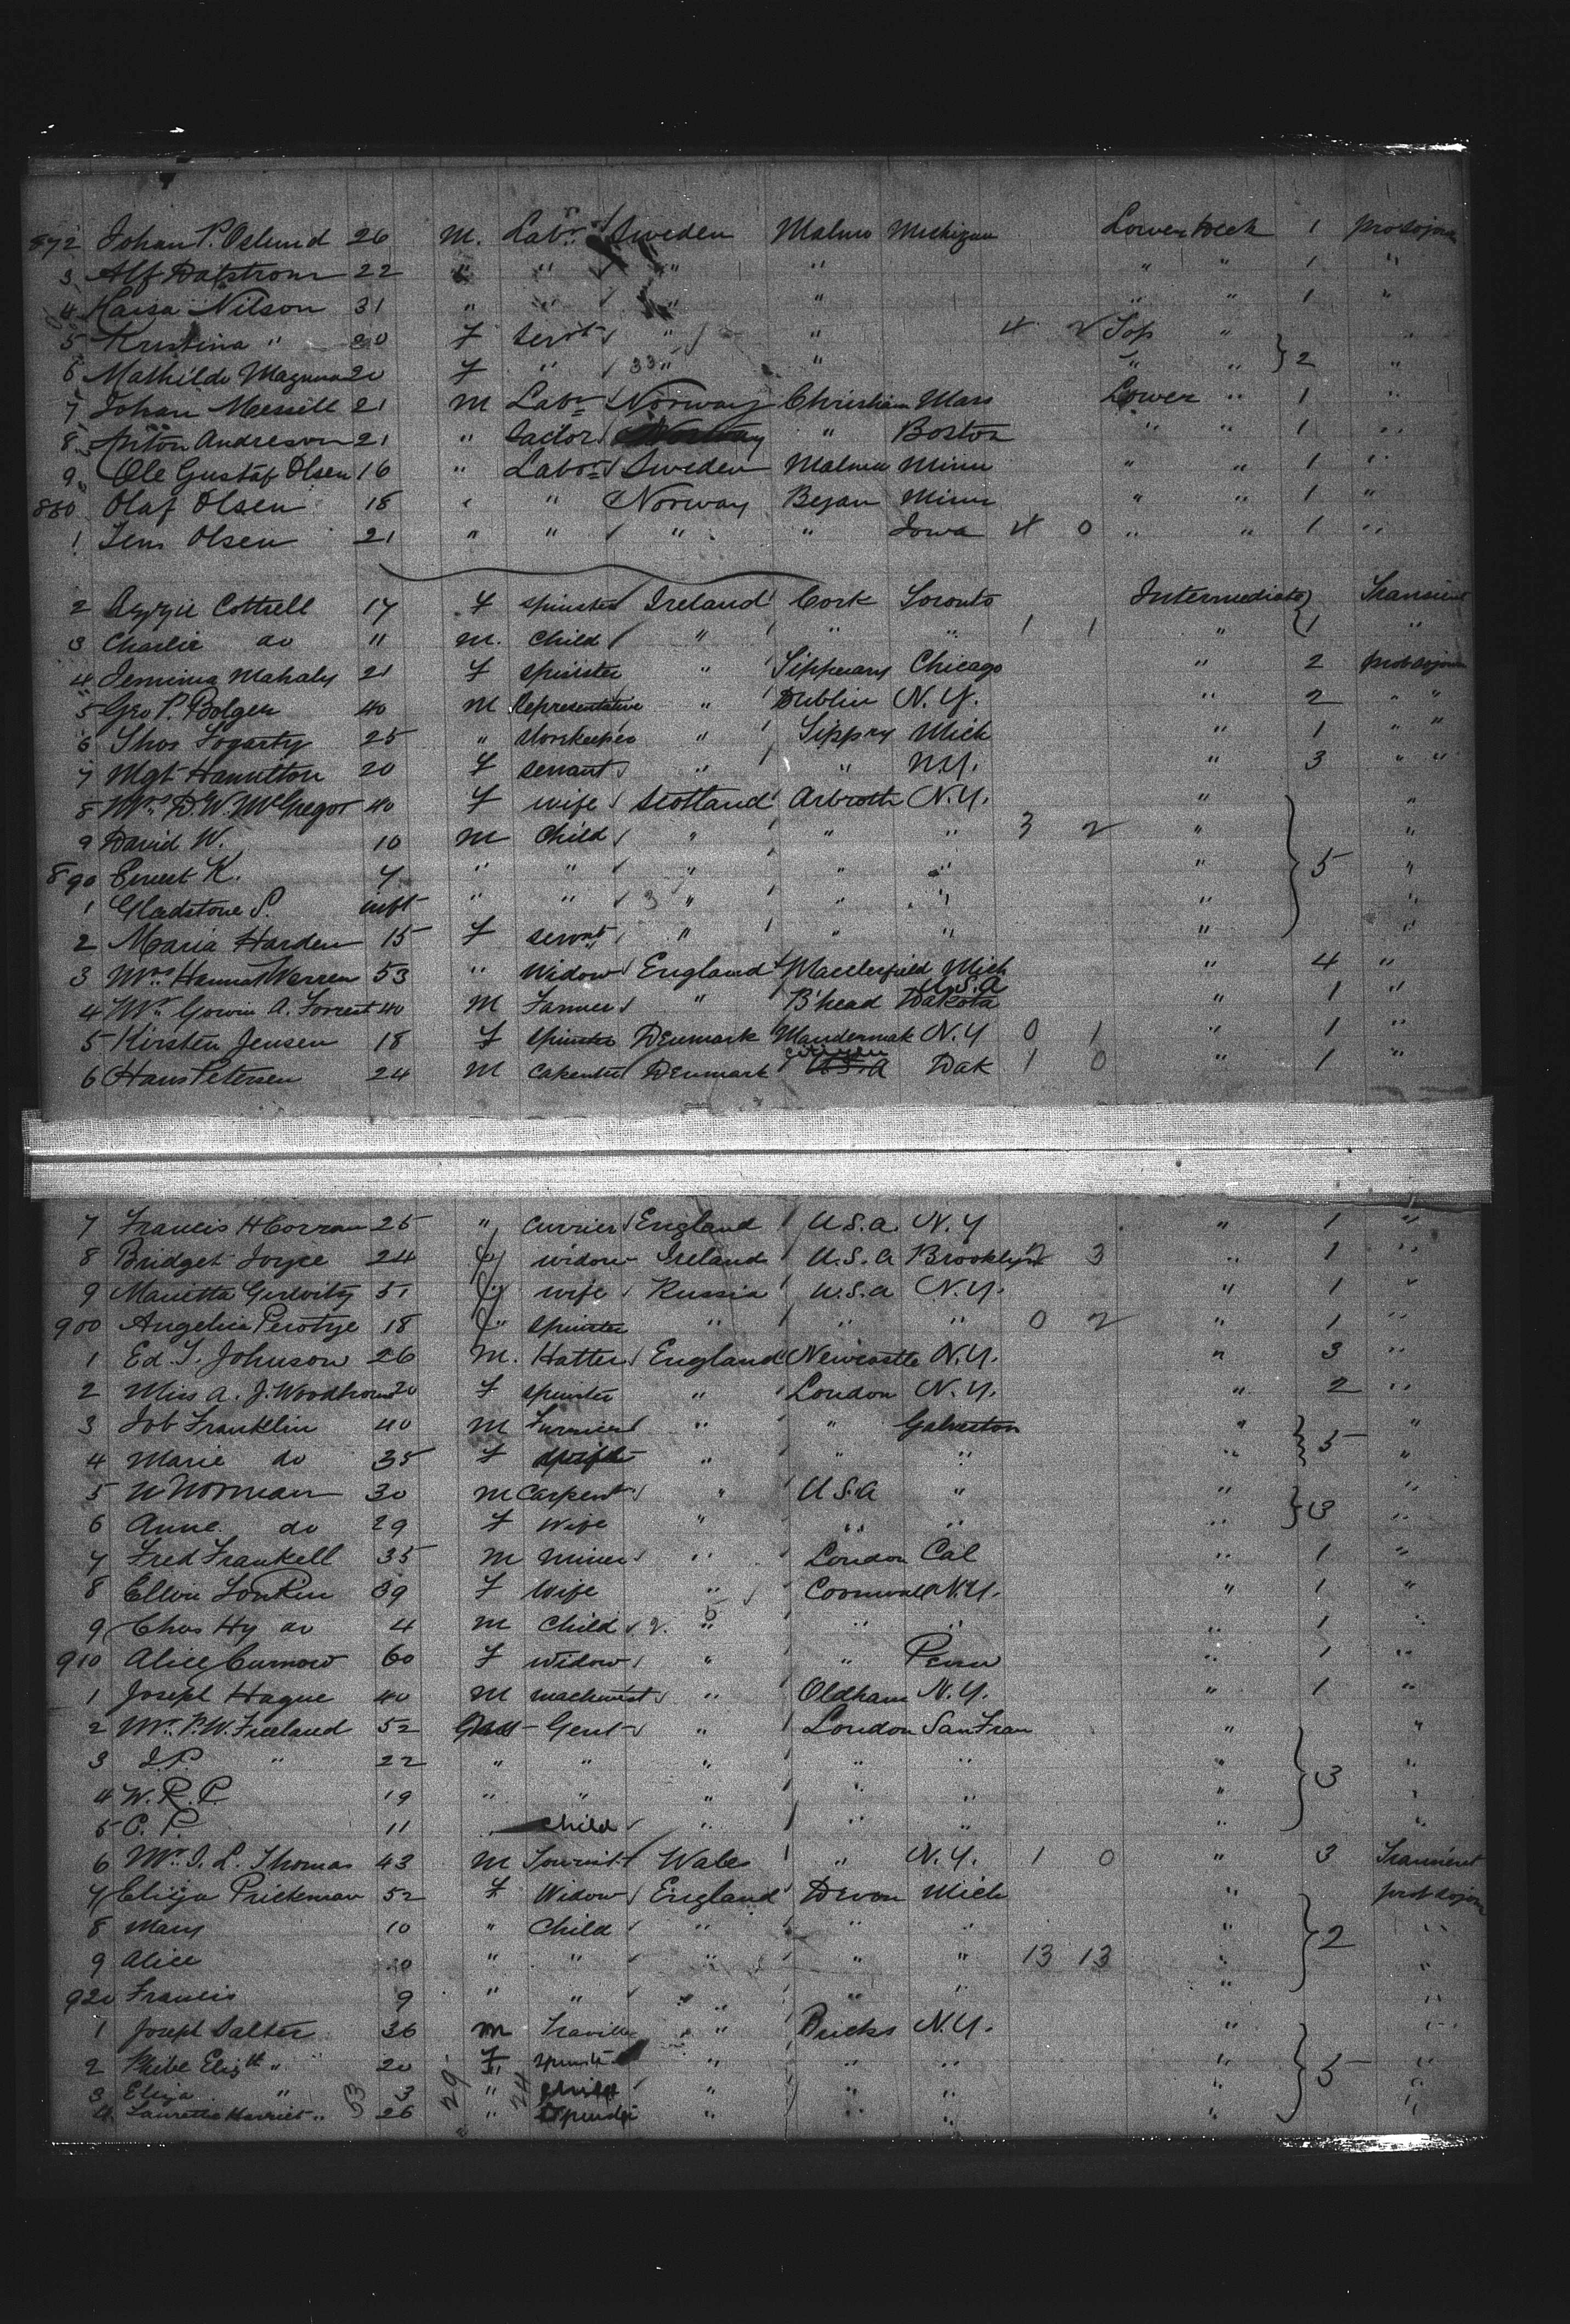 872 Johan P. Oslund 26 M. Labr Sweden Malmo Michigan Lower Deck 1 pro sojourn
3 Alf Dalstrom 22 " " " " " " 1 "
4 Kaisa Nilson 31 " " " " " " 1 "
5 Kristina " 20 f Servt " " 4 2 Top "
6 Mathilde Magnus 20 f " 33 " " " " 2 "
7 Johan Messill 21 M Labr Norway Christian Mass Lower " 1 "
8 Anton Andreson 21 " Sailor Norway " Boston " " 1 "
9 Ole Gustaf Olsen 16 " Labor Sweden Malmo Minn " " 1 "
880 Olaf Olsen 18 " " Norway Began Minn " " 1 "
1 Jens Olsen 21 " " " " Iowa 4 0 " " 1 "
2 Cottrell 17 f spinster Ireland Cork Toronto Intermediate Transient
3 Charlie do 11 M. Child " " " 1 1 " 1 "
4 Jemima Mahaly 21 f Spinster " Tipperary Chicago " 2 prot sojourn
5 Geo P. Bolger 40 M Representative " Dublin N.Y. " 2 " "
6 Thos Fogarty 25 " Storekeeper " Tippry Mich " 1 " "
7 Mgt Hamilton 20 f servant " " N.Y. " 3 " "
8 Mrs D.W. McGregor 40 f wife Scotland Arbroth N.Y. " "
9 David W. 10 M Child " " " 3 2 " "
890 Ernest K. 7 " " " " " " 5 "
1 Gladstone S. inft " " 3 " " " " "
2 Maria Harden 15 f servnt " " " " "
3 Mrs Hannah Warren 53 " Widow England Macclesfield Mich " 4 "
4 Mr Gowin A. Forrest 40 M Farmer " B'head U.S.A Dakota " 1 "
5 Kirsten Jensen 18 f Spinster Denmark N.Y 0 1 " 1 "
6 Hans Petersen 24 M Capenter Denmark U.S.A citizen Dak 1 0 " 1 "
7 Francis H Corran 25 " Currier England U.S.A. N.Y " 1 "
8 Bridget Joyce 24 " widow Ireland U.S.A Brooklyn 2 3 " 1 "
9 Marietta 51 " wife Russia U.S.A N.Y. " 1 "
900 Angelica 18 " spinster " " " 0 2 " 1 "
1 Ed. T. Johnson 26 M. Hatter England Newcastle N.Y. " 3 "
2 Miss A. J. Woodhouse 20 f spinster " London N.Y. " 2 "
3 Job Franklin 40 M Furrier " " Galveston " 5 "
4 Marie do 35 f wife " " " " "
5 W Norman 30 M Carpent " U.S.A " " 3 "
6 Anne do 29 f Wife " " " " "
7 Fred Frankell 35 M Miner " London Cal " 1 "
8 Ellen Lonkin 39 f Wife " Cornwall N.Y. " 1 "
9 Chas Hy do 4 M Child 2. 5 " " " " 1 "
910 Alice Curnow 60 f Widow " " Penn " 1 "
1 Joseph Hague 40 M machinist " Oldham N.Y. " 1 "
2 Mr. P.W. Freeland 52 Gent " London San Fran " "
3 J.P. " 22 " " " " " " 3 "
4 W.R.P. 19 " " " " " " "
5 O.P. 11 " Child " " " " "
6 Mr. J. L. Thomas 43 M Tourist Wales " N.Y. 1 0 " 3 Transient
7 Eliza Prickman 52 f Widow England Devon Mich " prot sojour
8 Mary 10 " Child " " " " 2 "
9 Alice 10 " " " " " 13 13 " "
920 Francis 9 " " " " " " "
1 Joseph Salter 36 m " Bucks N.Y. " "
2 Phebe Elizth " 20 f " " " " 5 "
3 Eliza " 53 3 29 " 24 child " " " " "
4 Lauretta Harriet " 26 " Spinster " " " " "